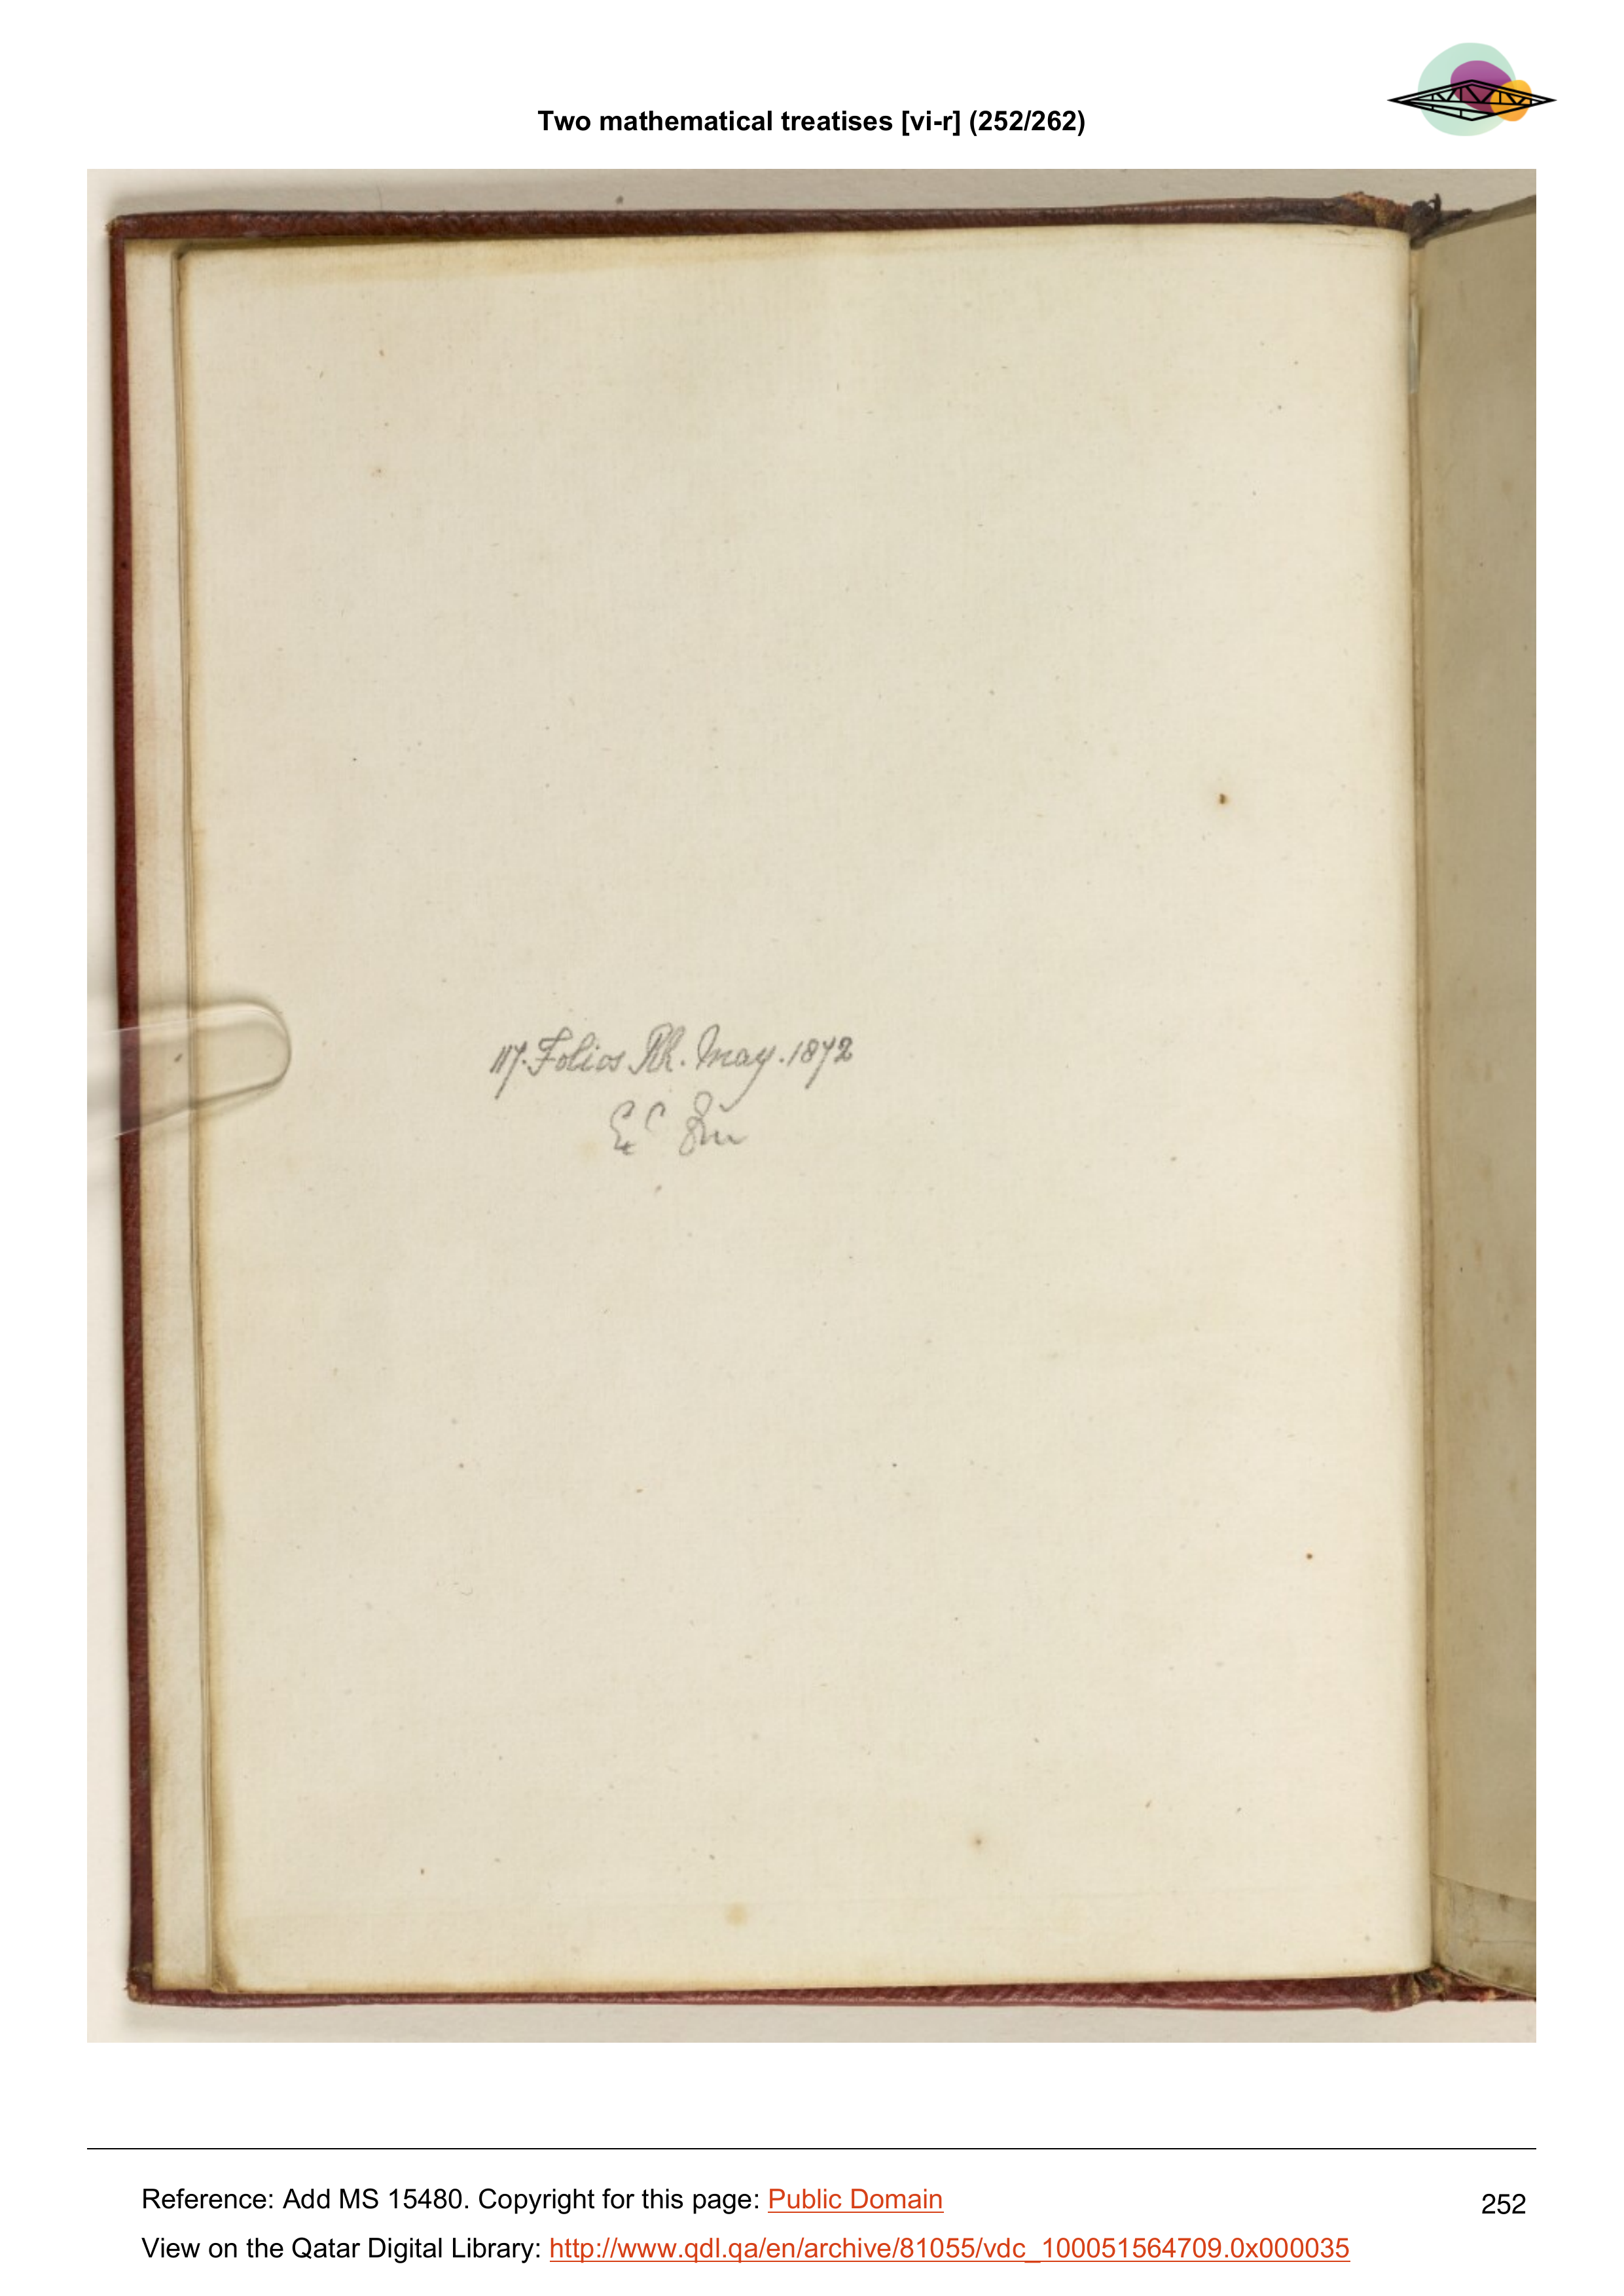 Two mathematical treatises [vi-r] (252/262)
117. Folios May. 1872
Reference: Add MS 15480. Copyright for this page: Public Domain
252
View on the Qatar Digital Library: http://www.qdl.qa/en/archive/81055/vdc_100051564709.0x000035